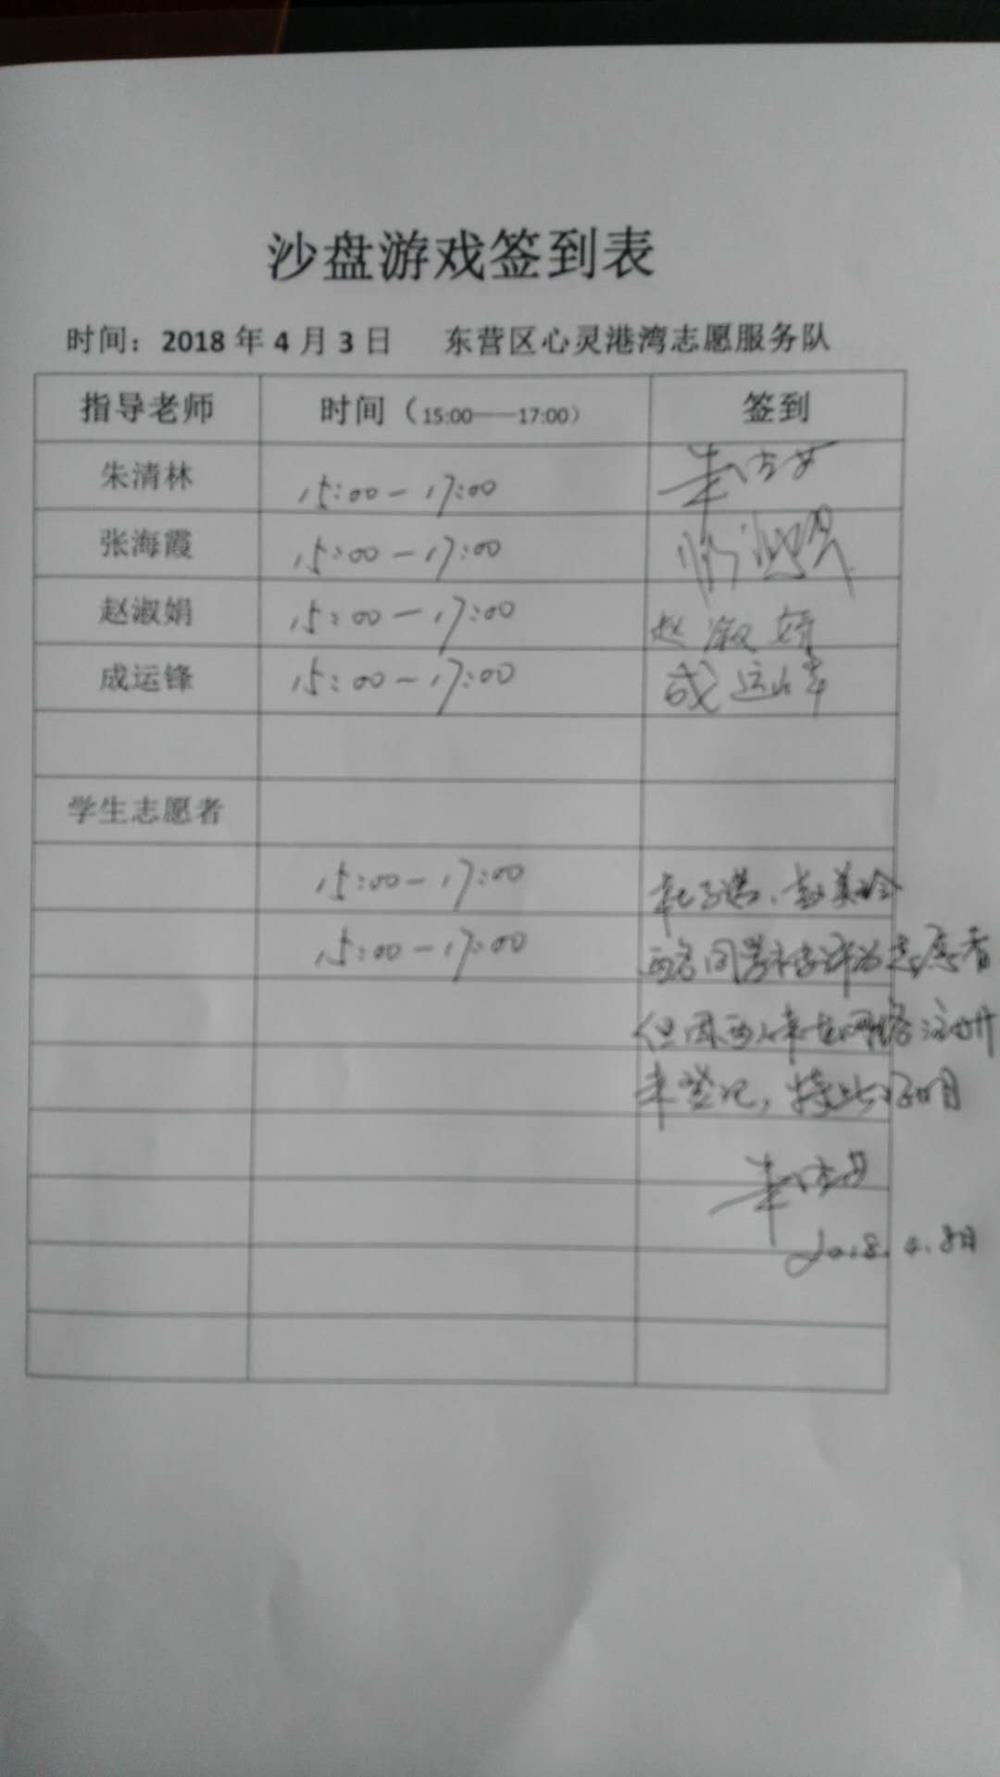 沙盘游戏签到表
时间：2018年4月3日 东营区心灵港湾志愿服务队
指导老师 时间（15:00——17:00） 签到
朱清林 15:00－17:00 朱清林
张海霞 15:00－17:00 张海霞
赵淑娟 15:00－17:00 赵淑娟
成运锋 15:00－17:00 成运锋
学生志愿者
15:00－17:00
15:00－17:00 两名同学志愿者
但因两人未在网络注册
未登记，特此说明
2018.4.3日